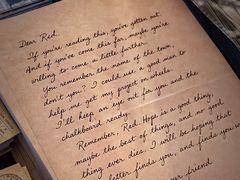 Dear Red,
If you're reading this, you've gotten out
And if you've come this far, maybe you're
willing to come a little further.
You remember the name of the town,
don't you? I could use a good man to
help me get my project on wheels
I'll keep an eye out for you and the
chalkboard ready.
Remember, Red. Hope is a good thing,
maybe the best of things, and no good
thing ever dies. I will be hoping that
letter finds you, and finds you
your friend